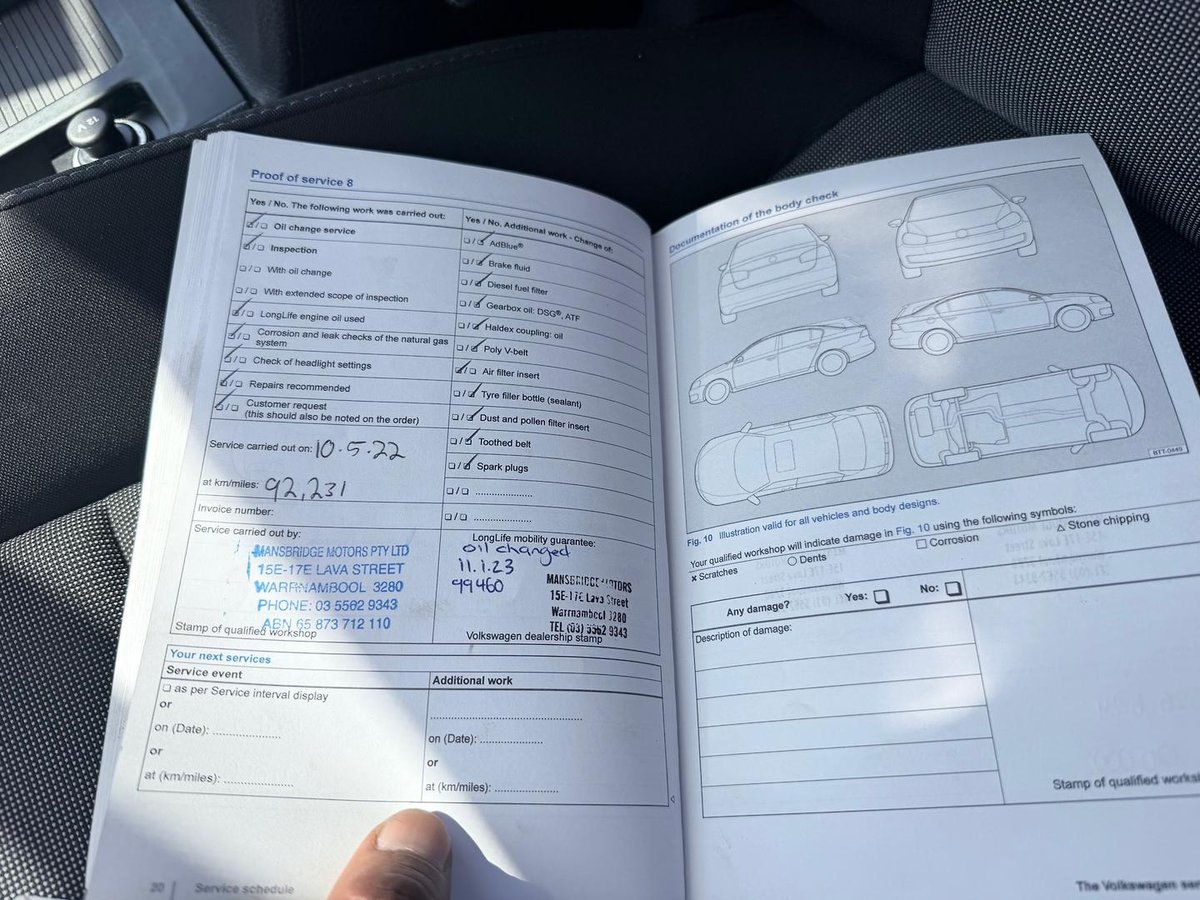 12 V
Proof of service 8
Yes / No. The following work was carried out:
Oil change service
Inspection
With oil change
With extended scope of inspection
LongLife engine oil used
Corrosion and leak checks of the natural gas
system
Check of headlight settings
Repairs recommended
Customer request
(this should also be noted on the order)
Service carried out on: 10.5.22
at km/miles: 92,231
Invoice number:
Service carried out by:
MANSBRIDGE MOTORS PTY LTD
15E-17E LAVA STREET
WARRNAMBOOL 3280
PHONE: 03 5562 9343
ABN 65 873 712 110
Stamp of qualified workshop
Yes / No. Additional work - Change of:
AdBlue®
Brake fluid
Diesel fuel filter
Gearbox oil: DSG®, ATF
Haldex coupling: oil
Poly V-belt
Air filter insert
Tyre filler bottle (sealant)
Dust and pollen filter insert
Toothed belt
Spark plugs
LongLife mobility guarantee:
oil changed
11.1.23
99460
MANSBRIDGE MOTORS
15E-17E Lava Street
Warrnambool 3280
TEL (03) 5562 9343
Volkswagen dealership stamp
Your next services
Service event
as per Service interval display
or
on (Date):
or
at (km/miles):
Additional work
on (Date):
or
at (km/miles):
20 | Service schedule
Documentation of the body check
BTT-0449
Fig. 10 Illustration valid for all vehicles and body designs.
Your qualified workshop will indicate damage in Fig. 10 using the following symbols:
x Scratches ○ Dents □ Corrosion △ Stone chipping
Any damage? Yes: No:
Description of damage:
Stamp of qualified
The Volkswagen